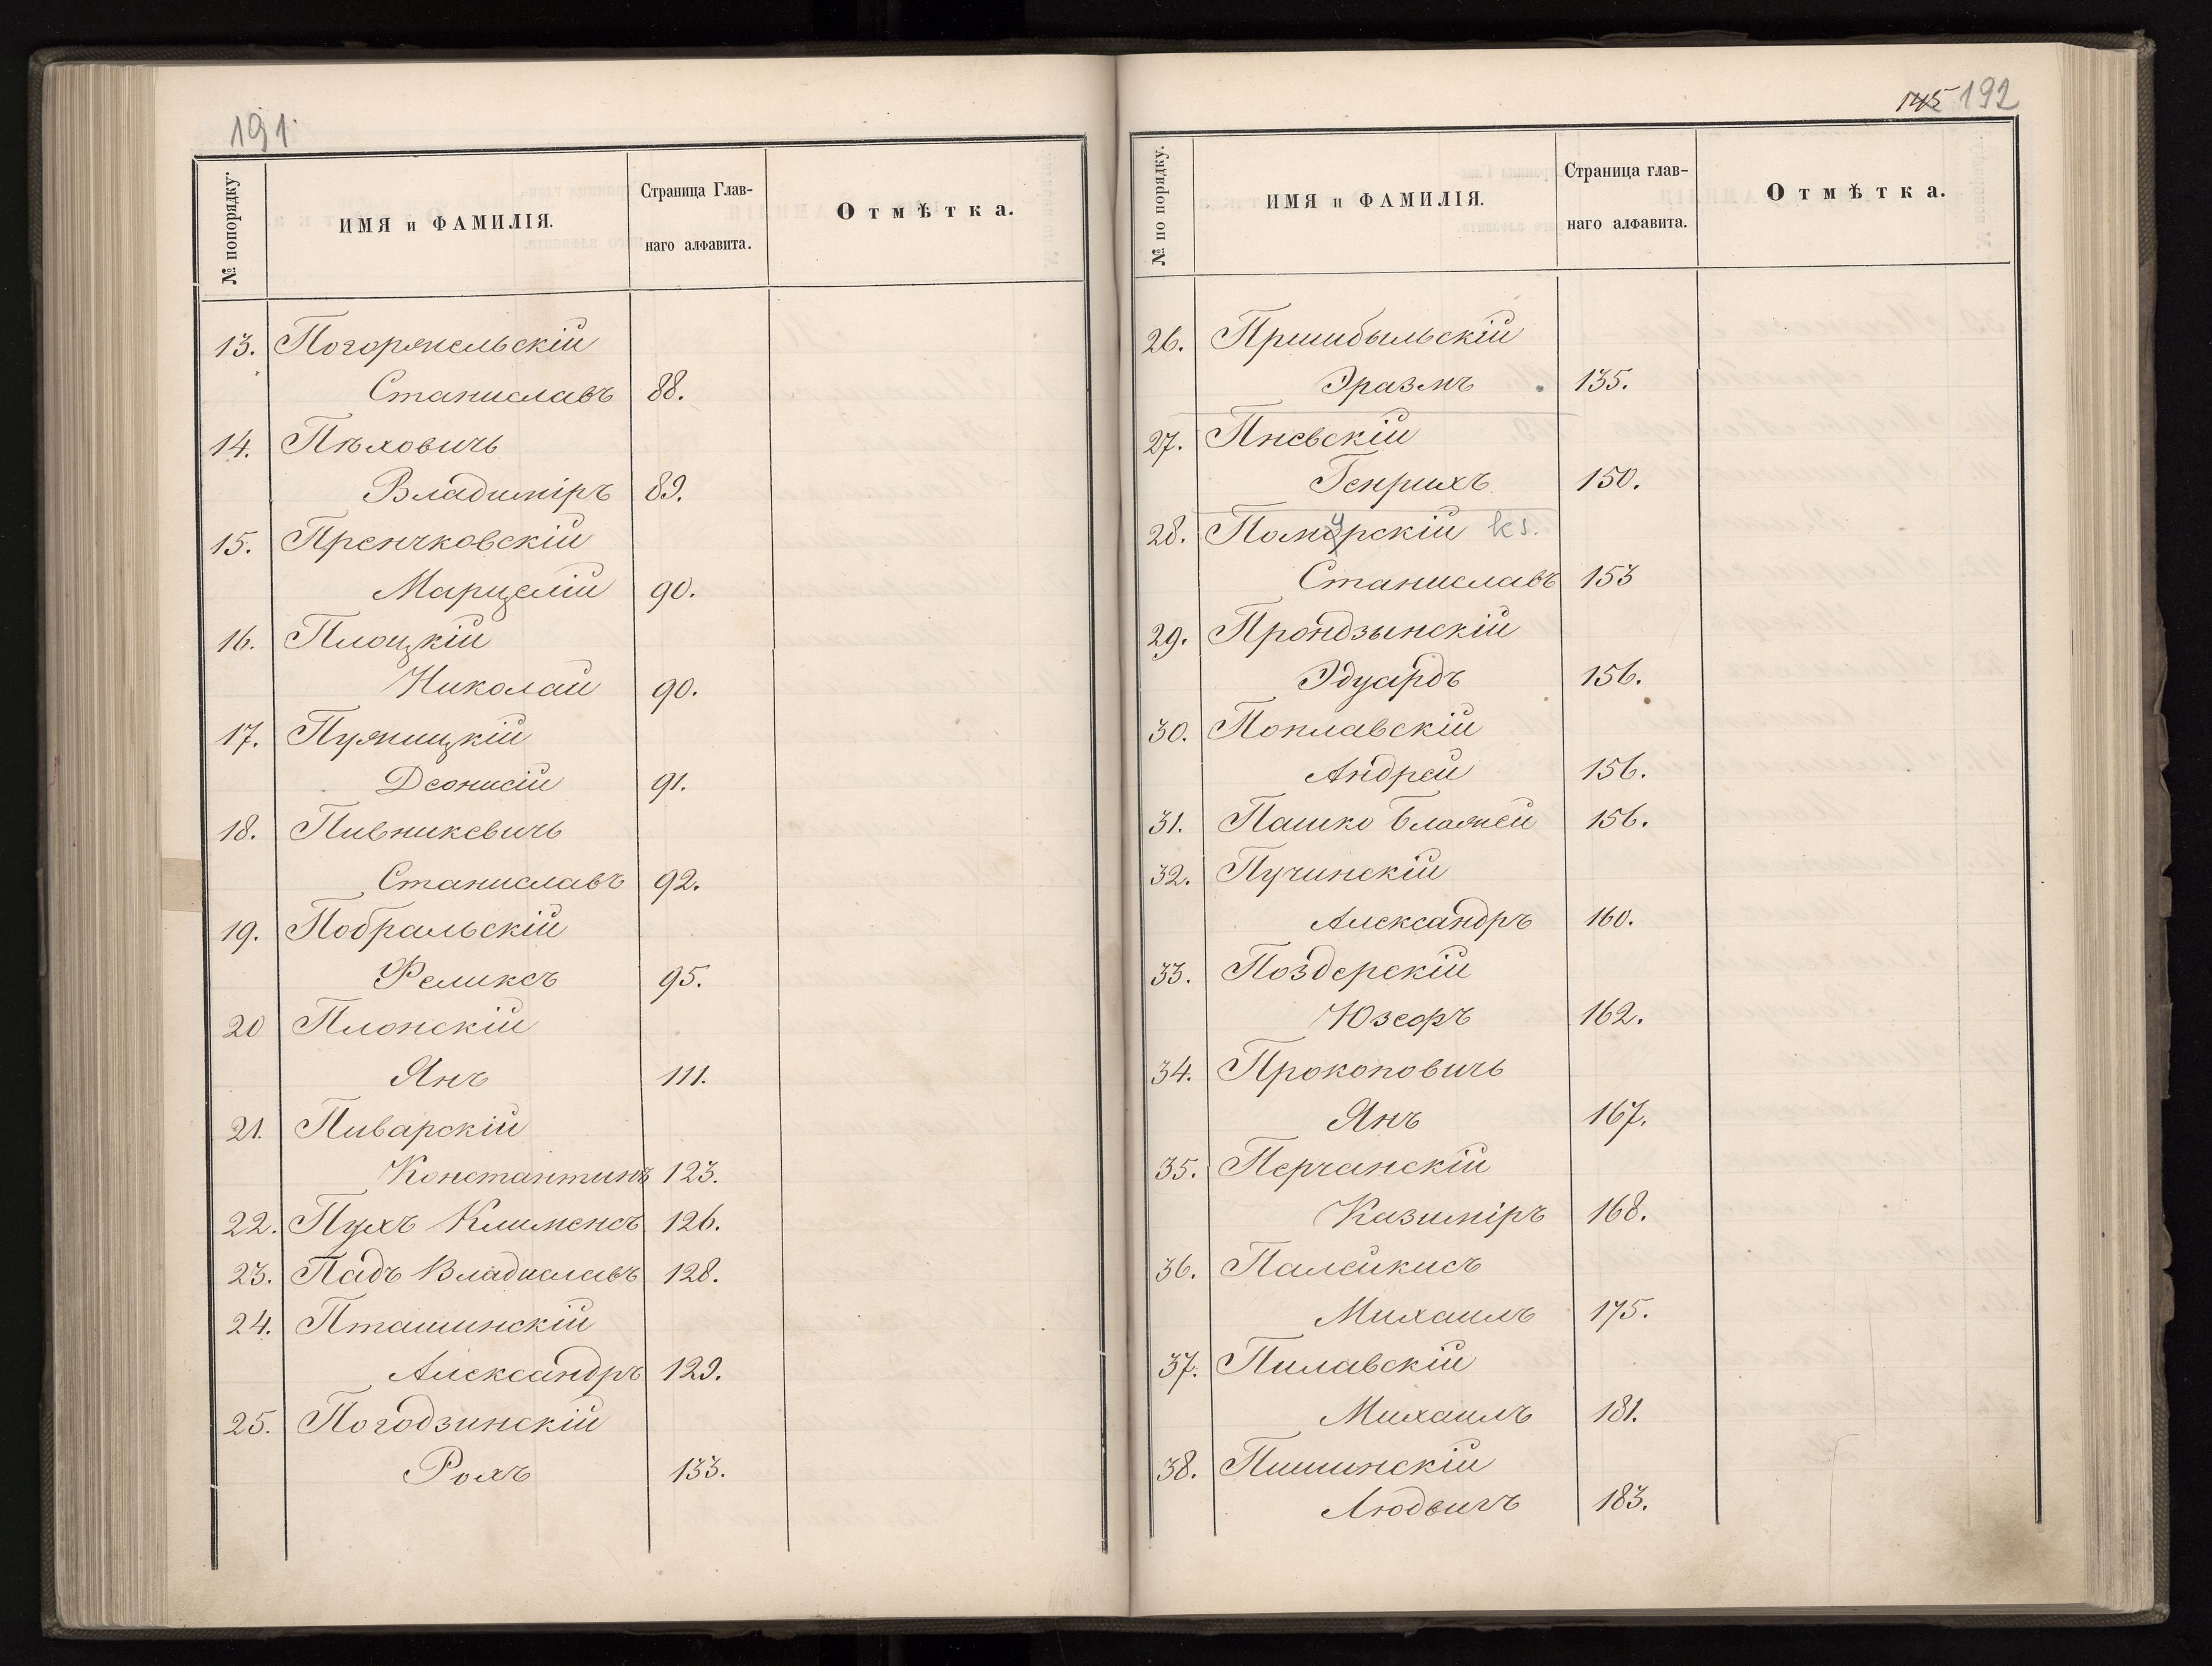 191.
№ попорядку.
ИМЯ и ФАМИЛІЯ.
Страница Глав-
наго алфавита.
Отмѣтка.
13. Погоржельскій
Станиславъ 88.
14. Пѣховичъ
Владиміръ 89.
15. Пренчковскій
Марцелій 90.
16. Плоцкій
Николай 90.
17. Пужицкій
Деонисій 91.
18. Пивникевичъ
Станиславъ 92.
19. Побральскій
Феликсъ 95.
20 Плонскій
Янъ 111.
21. Пиварскій
Константинъ 123.
22. Пухъ Клименсъ 126.
23. Падъ Владиславъ 128.
24. Пташинскій
Александръ 129.
25. Погодзинскій
Рохъ 133.
145 192
№ по порядку.
ИМЯ и ФАМИЛІЯ.
Страница глав-
наго алфавита.
Отмѣтка.
26. Пршибыльскій
Эразмъ 135.
27. Пневскій
Генрихъ 150.
28. Помурскій ks.
Станиславъ 153
29. Прондзынскій
Эдуардъ 156.
30. Поплавскій
Андрей 156.
31. Пашко Блажей 156.
32. Пучинскій
Александръ 160.
33. Поздерскій
Юзефъ 162.
34. Прокоповичъ
Янъ 167.
35. Перчанскій
Казиміръ 168.
36. Палейкисъ
Михаилъ 175.
37. Пилавскій
Михаилъ 181.
38. Пишинскій
Людвигъ 183.